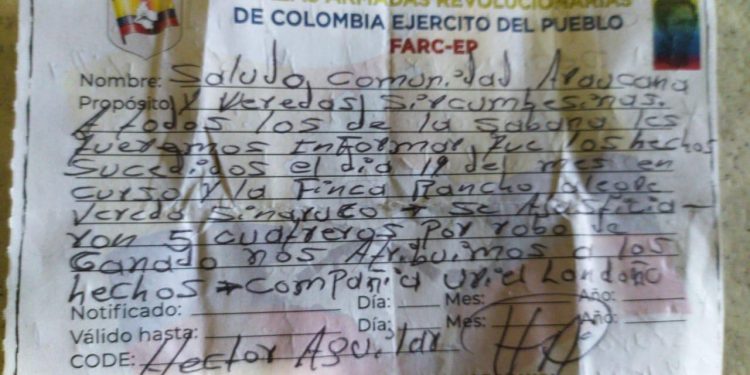 ZAS ARMADAS REVOLUCIONARIAS
DE COLOMBIA EJERCITO DEL PUEBLO
FARC-EP
Nombre: Saludo, Comunidad Araucana
Propósito y Veredas, Sircumbesinas.
A todos los de la Sabana les
Queremos Informar, que los hechos
Sucedidos el dia 19 del mes en
curso y la Finca Rancho alegre
Vereda Sinaruco → Se Ajusticia-
ron 5 cuatreros por robo de
Ganado nos Atribuimos a los
hechos → Compañia Uriel Londoño
Notificado: Día: Mes: Año:
Válido hasta: Día: Mes: Año:
CODE: Hector Aguilar